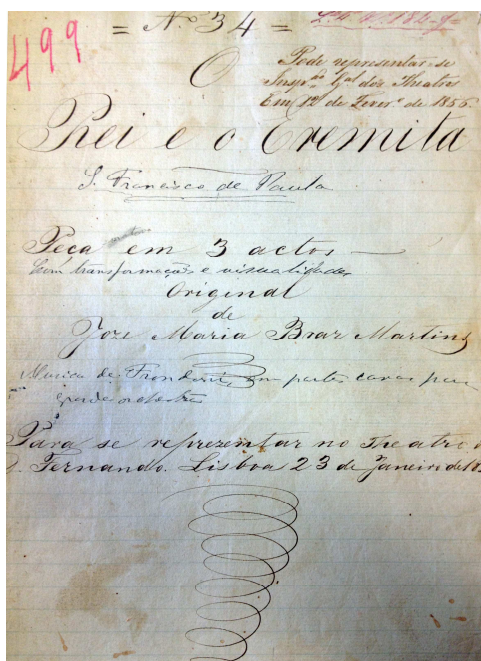 499
= N.º 34 =
Pode representar-se
Insp.ão G.al dos Theatros
Em de Fever.º de 1855
O
Rei e o Eremita
S. Francisco de Paula
Peça em 3 actos
Com transformações e visualidades
Original
de
Joze Maria Braz Martins
Musica de Frondoni em partes cavas para
grande orchestra
Para se reprezentar no Theatro
D. Fernando. Lisboa 23 de Janeiro de 18